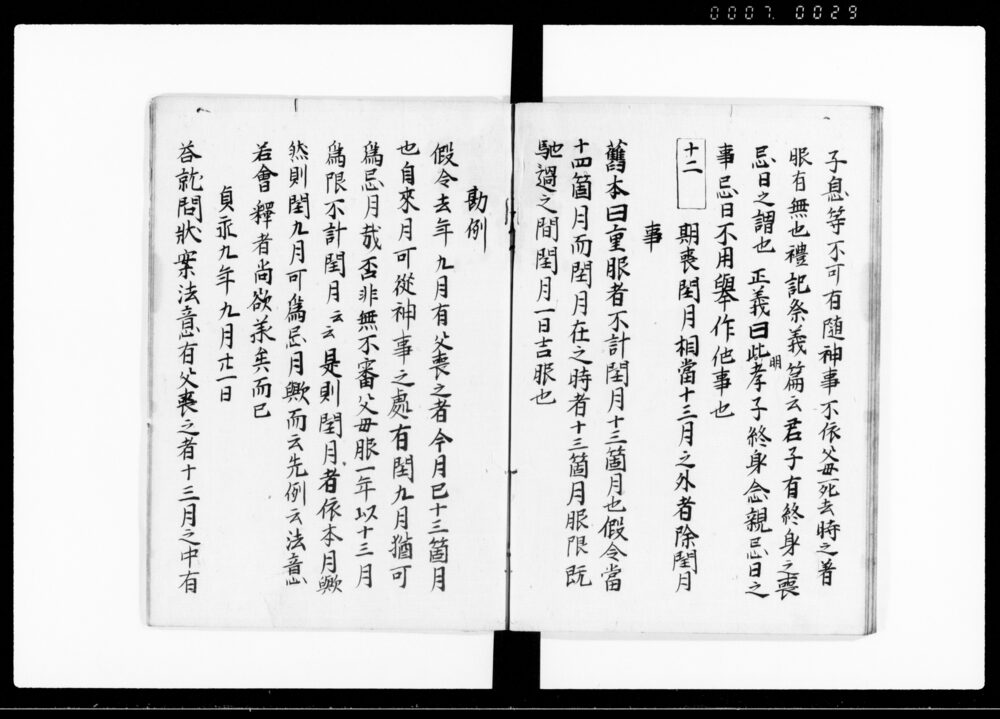 0007. 0029
子息等不可有随神事不依父母死去時之着
服有無也禮記祭義篇云君子有終身之喪
忌日之謂也 正義曰此明孝子終身念親忌日之
事忌日不用舉作他事也
十二 期喪閏月相當十三月之外者除閏月
事
舊本曰重服者不計閏月十三箇月也假令當
十四箇月而閏月在之時者十三箇月服限既
馳過之間閏月一日吉服也
勘例
假令去年九月有父喪之者今月已十三箇月
也自來月可從神事之處有閏九月猶可
爲忌月哉否非無不審父母服一年以十三月
爲限不計閏月云云是則閏月者依本月歟
然則閏九月可爲忌月歟而云先例云法意
若會釋者尚欲承矣而已
貞永九年九月廿一日
荅就問狀案法意有父喪之者十三月之中有